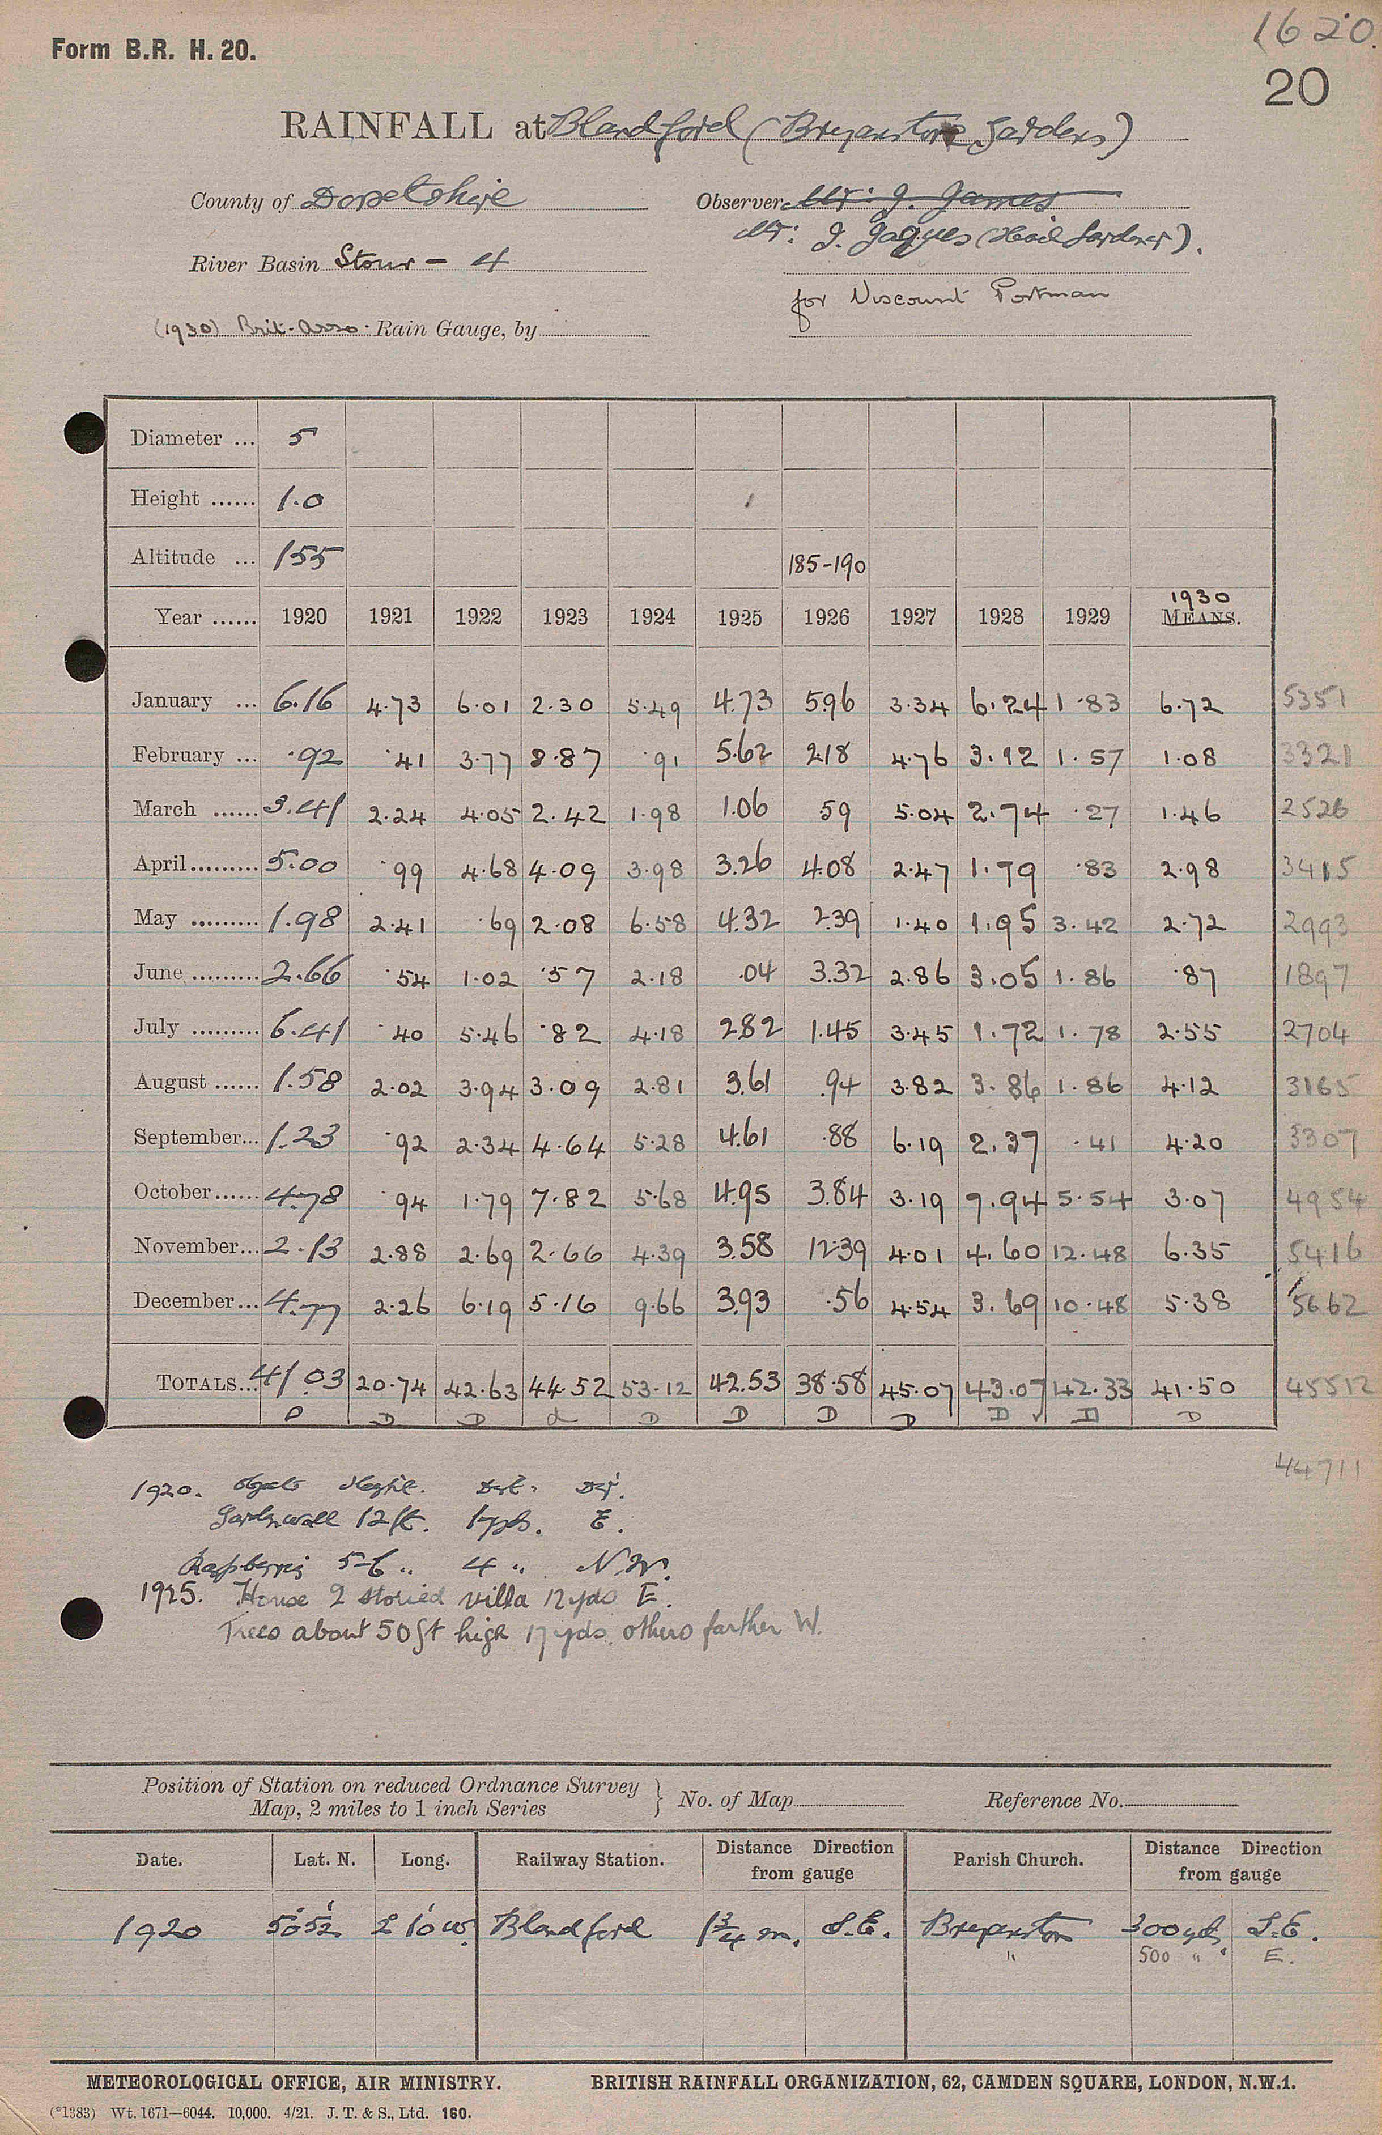 1620.
Form B.R. H. 20.
20
RAINFALL at Blandford (Bryanstone Gardens)
County of Dorsetshire Observer Mr: J. James
Mr: J. Jaques (Head Gardener).
River Basin Stour - 4
for Viscount Portman
(1930) Brit. Asso. Rain Gauge, by
Diameter ... 5
Height ...... 1.0
Altitude ... 155 185-190
1930
Year ...... 1920 1921 1922 1923 1924 1925 1926 1927 1928 1929 MEANS.
January ... 6.16 4.73 6.01 2.30 5.49 4.73 5.96 3.34 6.24 1.83 6.72 5351
February ... .92 .41 3.77 8.87 .91 5.62 2.18 4.76 3.12 1.57 1.08 3321
March ...... 3.41 2.24 4.05 2.42 1.98 1.06 59 5.04 2.74 .27 1.46 2526
April......... 5.00 .99 4.68 4.09 3.98 3.26 4.08 2.47 1.79 .83 2.98 3415
May ......... 1.98 2.41 .69 2.08 6.58 4.32 2.39 1.40 1.95 3.42 2.72 2993
June ......... 2.66 .54 1.02 .57 2.18 .04 3.32 2.86 3.05 1.86 .87 1897
July ......... 6.41 .40 5.46 .82 4.18 2.82 1.45 3.45 1.72 1.78 2.55 2704
August ...... 1.58 2.02 3.94 3.09 2.81 3.61 .94 3.82 3.86 1.86 4.12 3165
September... 1.23 .92 2.34 4.64 5.28 4.61 .88 6.19 2.37 .41 4.20 3307
October...... 4.78 .94 1.79 7.82 5.68 4.95 3.84 3.19 7.94 5.54 3.07 4954
November... 2.13 2.88 2.69 2.66 4.39 3.58 12.39 4.01 4.60 12.48 6.35 5416
December... 4.77 2.26 6.19 5.16 9.66 3.93 .56 4.54 3.69 10.48 5.38 5662
TOTALS... 41.03 20.74 42.63 44.52 53.12 42.53 38.58 45.07 43.07 42.33 41.50 45512
D D D d D D D D D D D
44711
1920. Objects Height. Dist. Dir.
Garden wall 12 ft. 17 yds. E.
Raspberries 5-6 " 4 " N.W.
1925. House 2 storied villa 12 yds E.
Trees about 50 ft high 17 yds, others farther W.
Position of Station on reduced Ordnance Survey
Map, 2 miles to 1 inch Series } No. of Map Reference No.
Date. Lat. N. Long. Railway Station. Distance Direction from gauge Parish Church. Distance Direction from gauge
1920 50° 52' 2° 10' W. Blandford 1¾ m. S.E. Bryanston 300 yds S.E.
" 500 " E.
METEOROLOGICAL OFFICE, AIR MINISTRY. BRITISH RAINFALL ORGANIZATION, 62, CAMDEN SQUARE, LONDON, N.W.1.
(*1383) Wt. 1671—6044. 10,000. 4/21. J. T. & S., Ltd. 160.